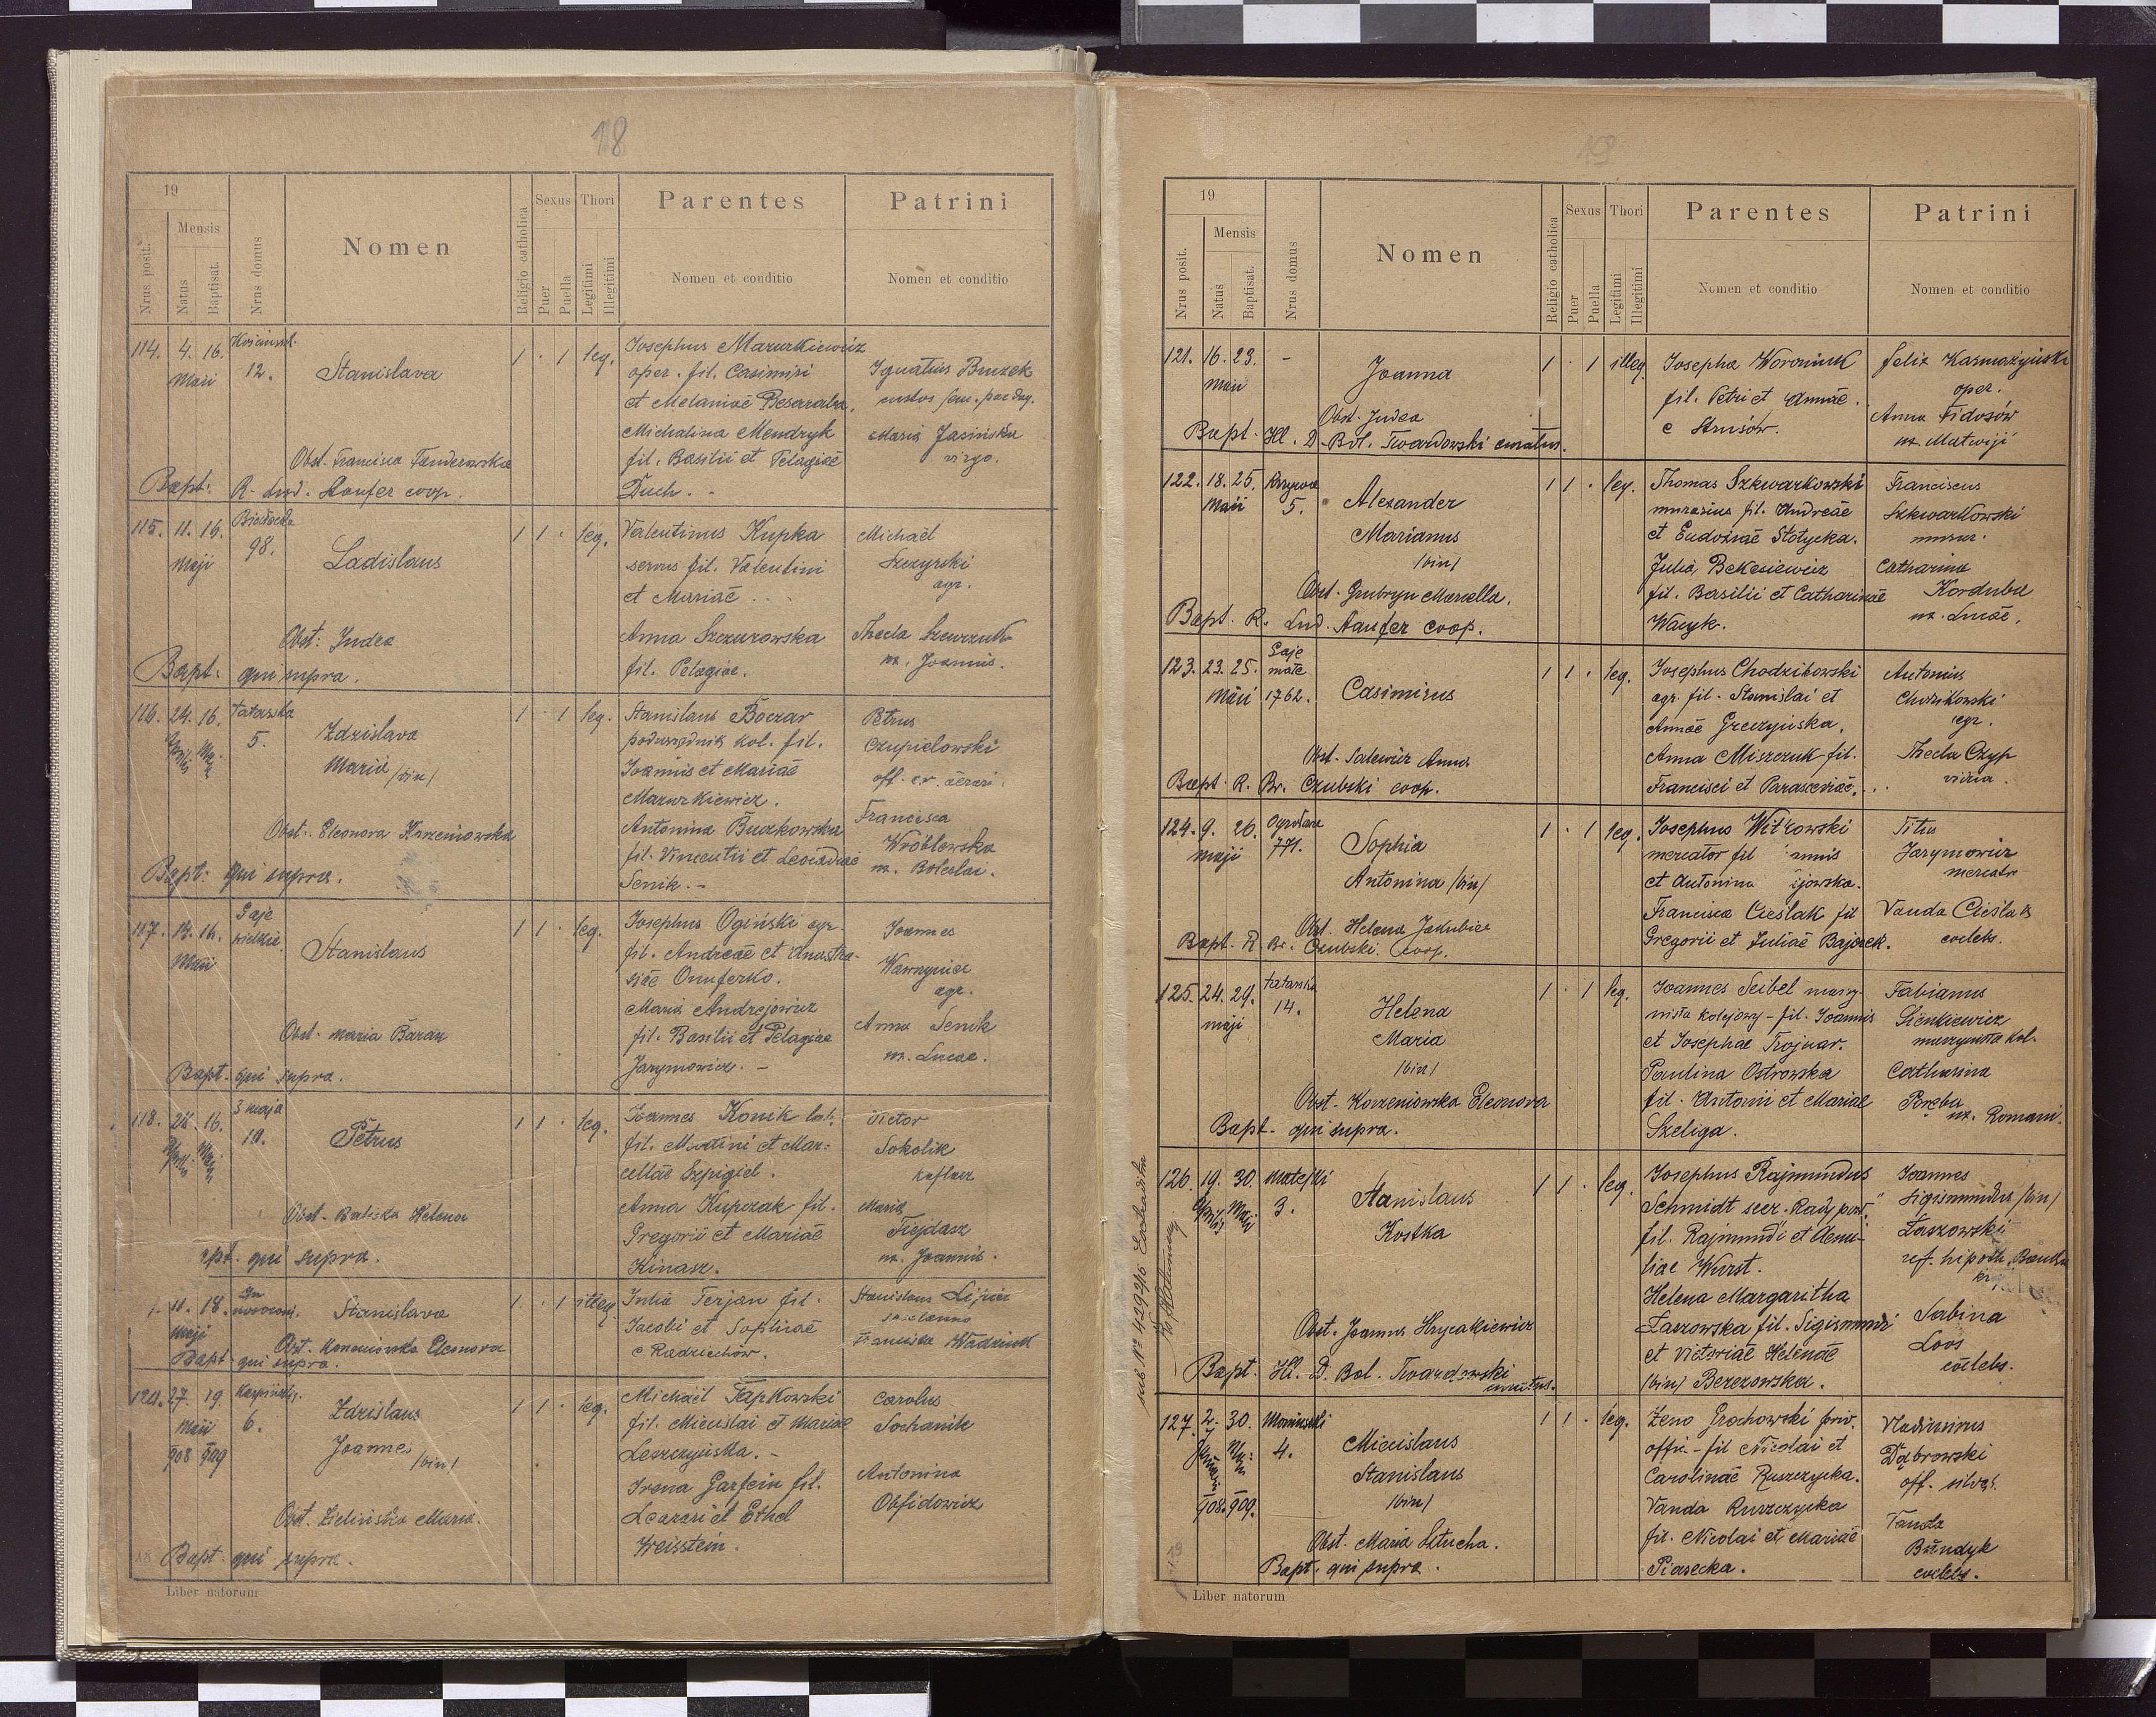 18
19
Nrus posit.
Mensis
Natus
Baptisat.
Nrus domus
Nomen
Religio catholica
Sexus
Puer
Puella
Thori
Legitimi
Illegitimi
Parentes
Nomen et conditio
Patrini
Nomen et conditio
114. 4. 16. Maii
12.
Stanislava
1 · 1 leg.
Josephus Mazurkiewicz
oper. fil. Casimiri
et Melaniae Besaraba.
Michalina Mendryk
fil. Basilii et Pelagiae
Duch. -
Ignatius Bruzek
custos sem. paedag.
Maria Jasińska
virgo.
Obst. Francisca
Bapt: R. Lud. coop.
115. 11. 16. Maji
98.
Ladislaus
1 1 · leg.
Valentinus Kupka
servus fil. Valentini
et Mariae . . .
Anna Szczurowska
fil. Pelagiae.
Michaël
Szczyrski
agr.
Thecla
ux. Joannis.
Obst: Judea
Bapt: qui supra.
116. 24. 16. Tatarska
Aprili Maji
5.
Zdzislava
Maria /bin/
1 · 1 leg.
Stanislaus Boczar
podurzędnik kol. fil.
Joannis et Mariae
Mazurkiewicz.
Antonina Buczkowska
fil. Vincentii et Leocadiae
Senik. -
Petrus
Czupielowski
Francisca
Wróblewska
m. Boleslai.
Obst: Eleonora Korzeniowska
Bapt: qui supra.
117. 13. 16. Maii
Gaje
wielkie.
Stanislaus
1 1 · leg.
Josephus Ogiński agr.
fil. Andreae et Anasta-
siae Onuferko.
Maria Andrejowicz
fil. Basilii et Pelagiae
Jarymowicz. -
Joannes
Wawrzyniec
agr.
Anna Senik
ux. Lucae.
Obst. Maria Baran
Bapt. qui supra.
118. 28. 16.
Aprili Maji
3 maja
10.
Petrus
1 1 · leg.
Joannes Konik lat.
fil. Martini et Mar-
cellae Szpigiel.
Anna Kupczak fil.
Gregorii et Mariae
Kinasz.
Victor
Sokolik
kaflarz
Maria
ux. Joannis.
Obst. Helena
qui supra.
11. 18. Maji
Stanislava
1 · 1 illeg.
Julia Terjan fil.
Jacobi et Sophiae
e Radziechów.
Stanislaus
Francisca
Obst. Eleonora
Bapt qui supra.
120. 27. 19. Kaspińskg.
Maii
908 909
6.
Zdzislaus
Joannes /bin/
1 1 · leg.
Michaël Fapkowski
fil. Miecislai et Mariae
Leszczyńska. -
Irena Garfein fil.
Leazari et Ethel
Weisstein.
Carolus
Sochanik
Antonina
Obfidowicz
Obst. Zielińska Maria.
Bapt. qui supra.
Liber natorum
19
19
Nrus posit.
Mensis
Natus
Baptisat.
Nrus domus
Nomen
Religio catholica
Sexus
Puer
Puella
Thori
Legitimi
Illegitimi
Parentes
Nomen et conditio
Patrini
Nomen et conditio
121. 16. 23. -
Maii
Joanna
1 · 1 illeg.
Josepha Woroniuk
fil. Petri et Annae
e Strusów.
Felix Karmazyński
oper.
Anna Fidosów
ux. Matwiji
Obst. Judea
Bapt. Ill. D. Bol. Twardowski curatus.
122. 18. 25. Krzywa
Maii 5.
Alexander
Marianus
/bin/
1 1 · leg.
Thomas Szkwarkowski
murarius fil. Andreae
et Eudoxiae Stotycka.
Julia Bekesiewicz
fil. Basilii et Catharinae
Wacyk.
Franciscus
Szkwarkowski
murar.
Catharina
Korduba
ux. Lucae.
Obst. Grubryn Marcella.
Bapt. R. Lud. coop.
123. 23. 25. Gaje
małe
Maii 1762.
Casimirus
1 1 · leg.
Josephus Chodzikowski
agr. fil. Stanislai et
Annae Greczyńska.
Anna Miszczuk fil.
Francisci et Parasceviae. . .
Antonius
Chodzikowski
agr.
Thecla Czyp
vidua.
Obst. Salewicz Anna
Bapt. R. Br. Czubski coop.
124. 9. 26. Ogrodowa
Maji 771.
Sophia
Antonina /bin/
1 · 1 leg.
Josephus Witkowski
mercator fil
et Antonina
Francisca Cieślak fil
Gregorii et Juliae Bajorek.
Titus
Jarymowicz
mercator
Vanda Cieślak
coelebs.
Obst. Helena Jakubiec
Bapt. R. Br. Czubski. Coop.
125. 24. 29. Tatarska
Maji 14.
Helena
Maria
/bin/
1 · 1 leg.
Joannes Seibel maszy-
nista kolejowy - fil. Joannis
et Josephae Trojnar.
Paulina Ostrowska
fil. Antonii et Mariae
Szeliga.
Fabianus
Sienkiewicz
maszynista kol.
Catharina
Poręba
ux. Romani.
Obst. Korzeniowska Eleonora
Bapt. qui supra.
126. 19. 30. Matejki
Aprilis Maji 3.
Stanislaus
Kostka
1 1 · leg.
Josephus Rajmundus
Schmidt secr. Rady pow.
fil. Rajmundi et Aemi-
liae Wurst.
Helena Margaritha
Łaszowska fil. Sigismundi
et Victoriae Helenae
/bin/ Berezowska.
Joannes
Sigismundus /bin/
Łaszowski
ref. hipoth. Banku
Sabina
Loos
coelebs.
Obst. Joanna Hrycakiewicz
Bapt. Ill. D. Bol. Twardowski
curatus.
127. 2. 30. Moniuszki
908. 909.
4.
Miecislaus
Stanislaus
/bin/
1 1 · leg.
Zeno Grochowski priv.
offic. - fil Nicolai et
Carolinae Ruszczycka.
Vanda Ruszczycka
fil. Nicolai et Mariae
Piasecka.
Vladimirus
Dąbrowski
off. silvat.
Vanda
Bundyk
coelebs.
Obst. Maria Sztucha.
Bapt. qui supra.
Liber natorum